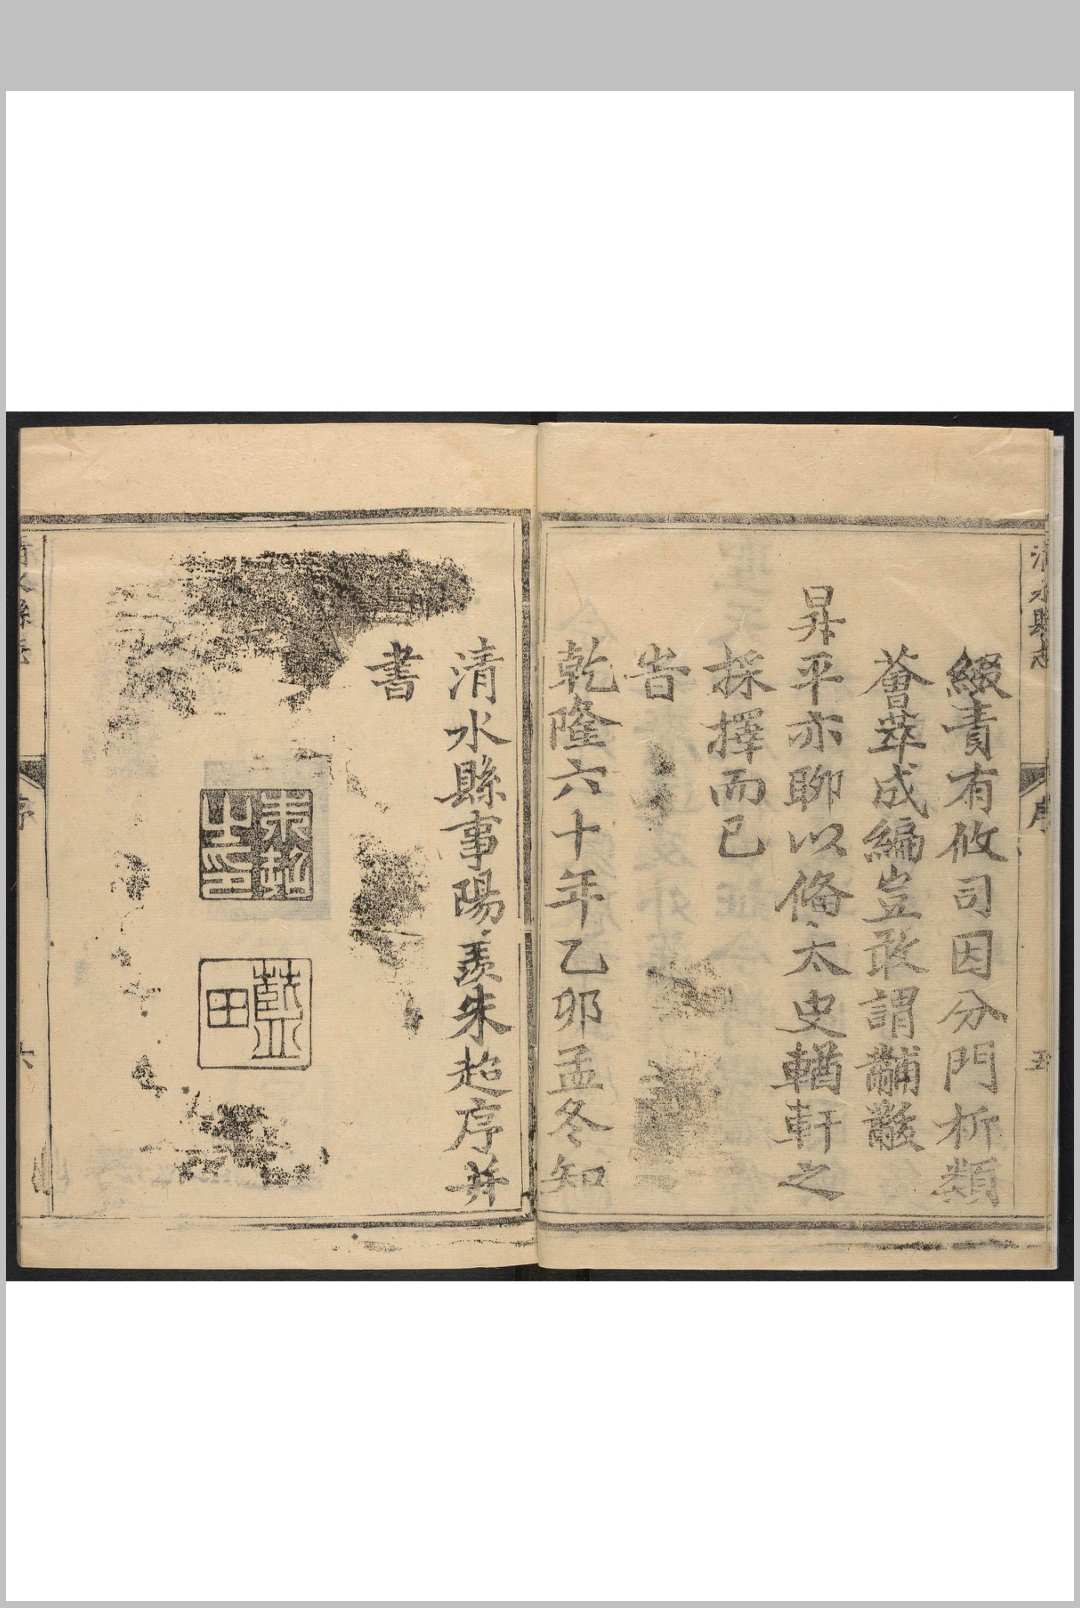 清水縣志
序
五
綴責有攸司因分門析類
薈萃成編豈敢謂黼黻
昇平亦聊以備太史輶軒之
採擇而已
告
乾隆六十年乙卯孟冬知
清水縣事陽羨朱超序并
書
朱超之印
藍田
清水縣志
序
六